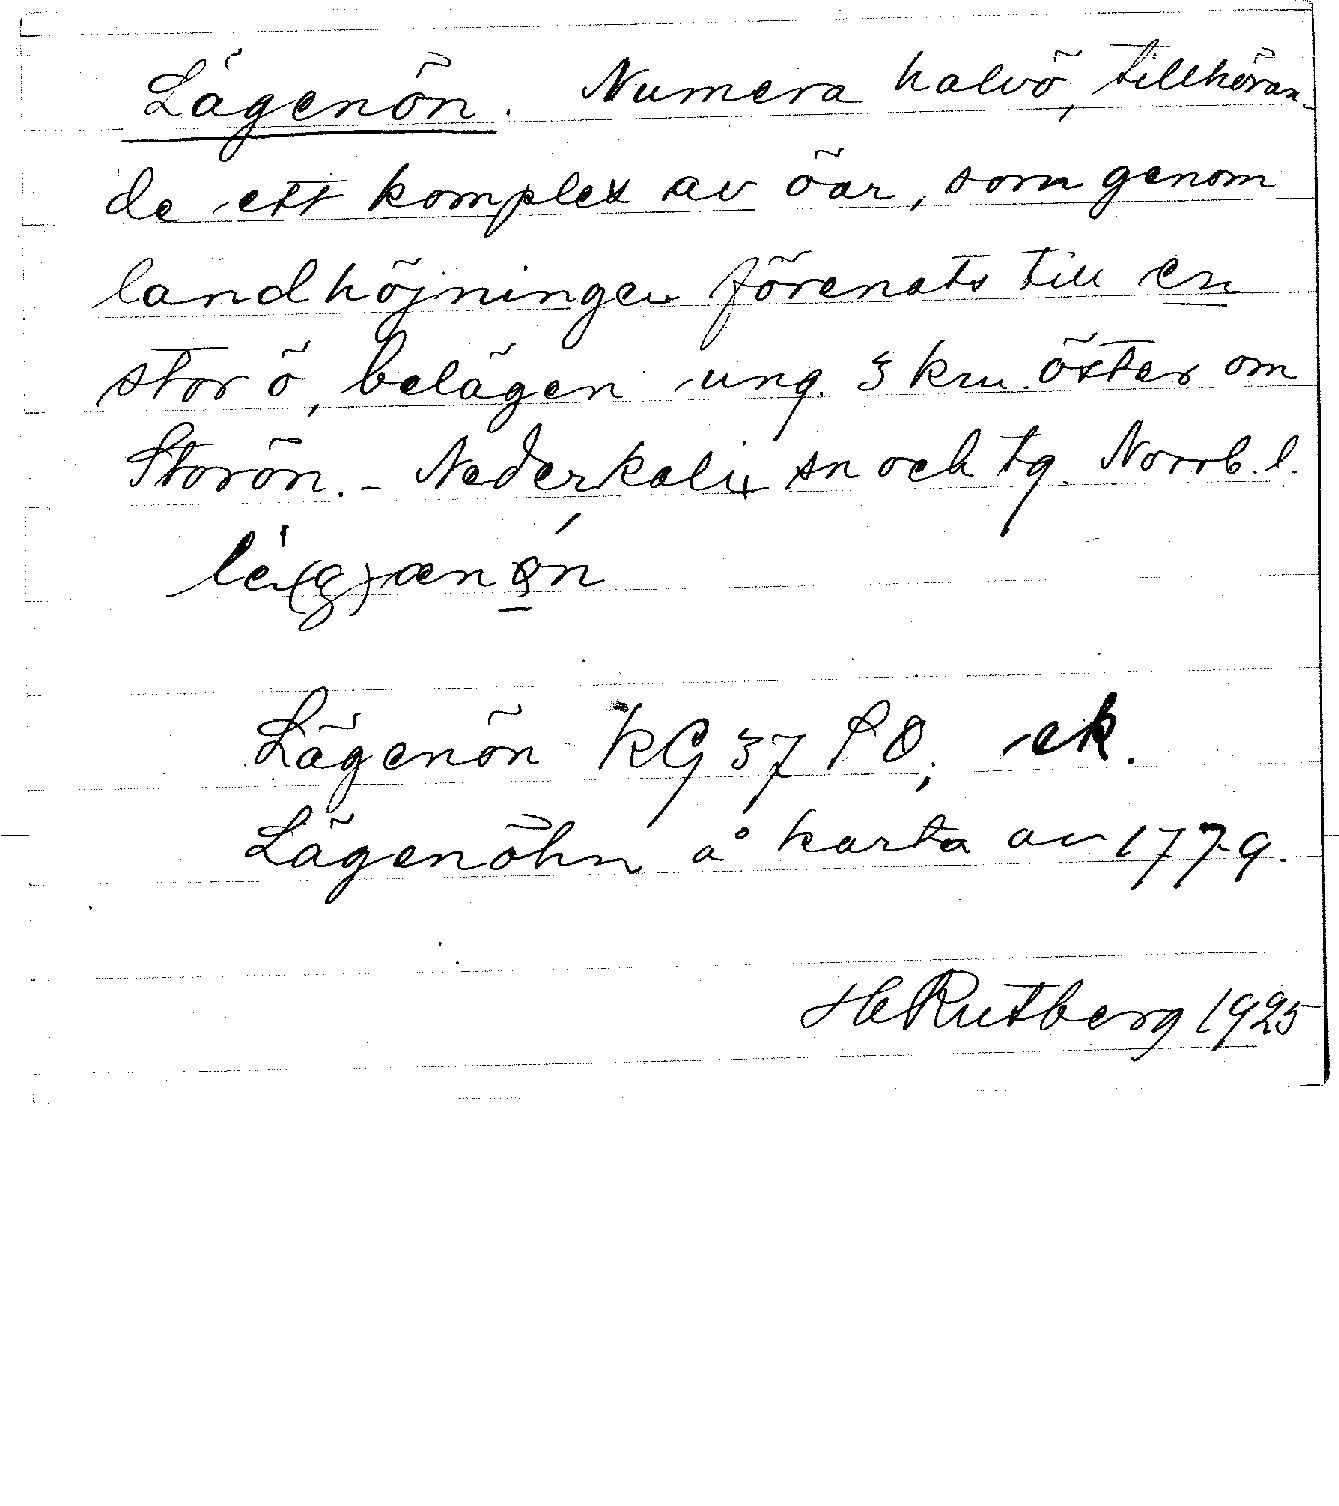 Lägenön. Numera halvö, tillhöran-
de ett komplex av öar, som genom
landhöjningen förenats till en
stor ö, belägen ung. 3 km. öster om
Storön. - Nederkalix sn och tg. Norrb. l.
Lägenön KG 37 SO, ek.
Lägenöhn å karta av 1779.
H Rutberg 1925